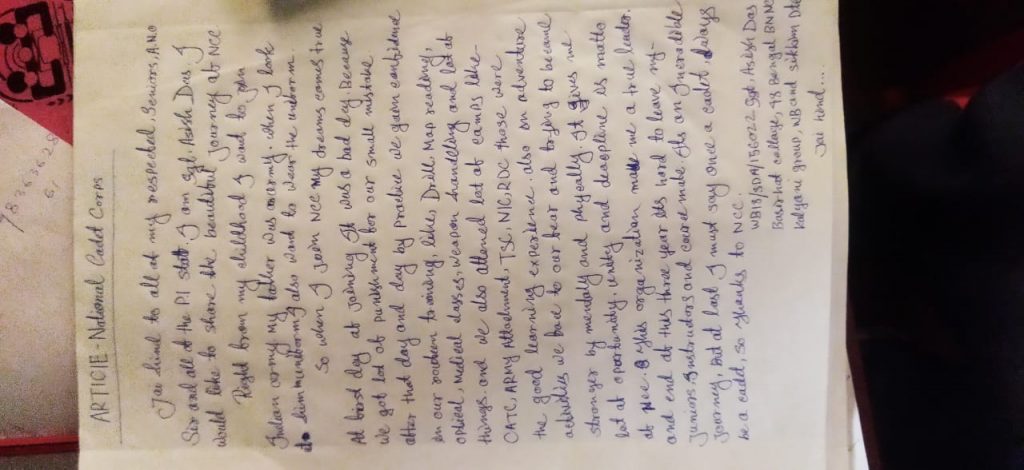 ARTICIE - National Cadet Corps
Jai hind to all of my respected, Seniors, A.N.O
Sir and all of the P.I staff. I am Sgt. Asish Das. I
would like to share the beautiful Journey of NCC
Right from my childhood I want to join
Indian army my father was in army. when I look
him uniform my also want to wear the uniform.
So when I join NCC my dreams comes true
At first day of joining It was a bad day Because
we got lot of punishment for our small mistake
after that day and day by practice we gain confidence
in our training, like, Drill, Map reading,
optical, Medical classes, weapon handling and lot of
things. and we also attened lot of camps like-
CATC, ARMY Attachment, TSC, NIC, RDC those were
the good learning experience. also on adventure
activities we face to our fear and trying to became
stronger by mentally and physically. It gives me
lot of oporbunaty. unity and
of Ncc. This orgenization make me a true leader.
and end of this three year its hard to leave my-
Juniors. Instrudors and make this an Increlible
Joorney, But at last I must say once a cadet always
be a cadd, So thanks to NCC.
WB18/SDA/156022 Sgt. Asish Das
Basirhat collage, 48 Bengal BN NCC
Kalyani group, WB and sikkim Dte
Jai hind....